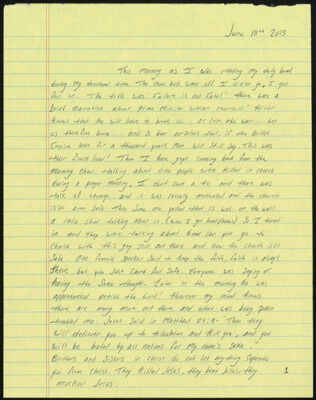 June 18th 2015
This morning as I was reading my daily bread
during my devotional time. The chow bell was off I never go, I got
fed up. The title was Failure is not Fatal! There was a
brief narrative about Prime Minister Winston Churchill "Hitler
knows that he will have to break us or lose the war
us therefore brace and so bear ourselves that, if the British
Empire lasts for a thousand years men will still say, This was
their finest hour! Then I hear guys coming back from the
morning chow talking about nine people were killed in church
during a prayer meeting. I don't own a tv and there was
talk of revenge and it was racially motivated and the church
isn't even safe. Then some one yelled that it was on the wall
a radio show talking about it. I have a headphones So I tuned
in and they were talking about how can you go to
church with this guy still out there and now the church isn't
safe. One female speaker said to keep the faith, faith is always
there but you just can't feel safe. Everyone was saying or
having the same thought. Later in the morning he was
apprehended praise the Lord! However my mind knows
there are many more out there and what was being spoken
troubled me. Jesus said in Matthew 24:9- Then they
will deliver you up to tribulation and kill you, and you
will be hated by all nations for my name's sake"
Brothers and sisters in Christ do not let anything separate
you from Christ. They killed Jesus, they beat Jesus, they
mocked Jesus.
1